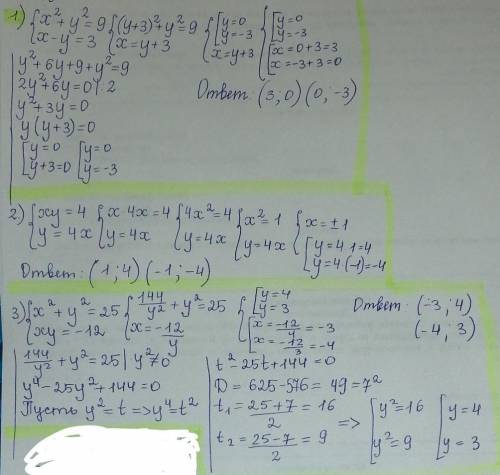 1) { x² + y² = 9 { (y+3)² + y² = 9 { [ y = 0 { [ y = 0
x - y = 3 x = y + 3 y = -3 y = -3
x = y+3 [ x = 0+3 = 3
x = -3+3 = 0
y² + 6y + 9 + y² = 9
2y² + 6y = 0 | : 2
y² + 3y = 0
y (y+3) = 0
[ y = 0 [ y = 0
y+3 = 0 y = -3
Ответ: (3; 0) (0; -3)
2) { xy = 4 { x 4x = 4 { 4x² = 4 { x² = 1 { x = ±1
y = 4x y = 4x y = 4x y = 4x [ y = 4·1 = 4
y = 4·(-1) = -4
Ответ: (1; 4) (-1; -4)
3) { x² + y² = 25 { 144/y² + y² = 25 { [ y = 4
xy = -12 x = -12/y y = 3
[ x = -12/4 = -3
x = -12/3 = -4
Ответ: (-3; 4)
(-4; 3)
144/y² + y² = 25 | y² ≠ 0
y⁴ - 25y² + 144 = 0
Пусть y² = t => y⁴ = t²
t² - 25t + 144 = 0
D = 625 - 576 = 49 = 7²
t₁ = (25+7)/2 = 16
t₂ = (25-7)/2 = 9
=> [ y² = 16 [ y = 4
y² = 9 y = 3